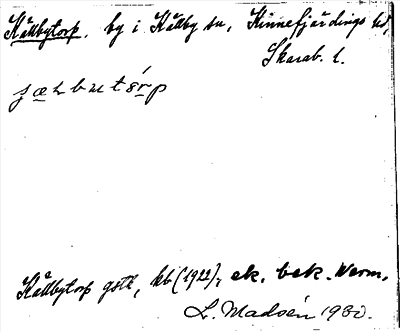 Källbytorp. by i Källby sn, Kinnefjärdings hd,
Skarab. l.
Källbytorp gstk, kb (1922), ek. bek. Werm.
L. Madsén 1930.